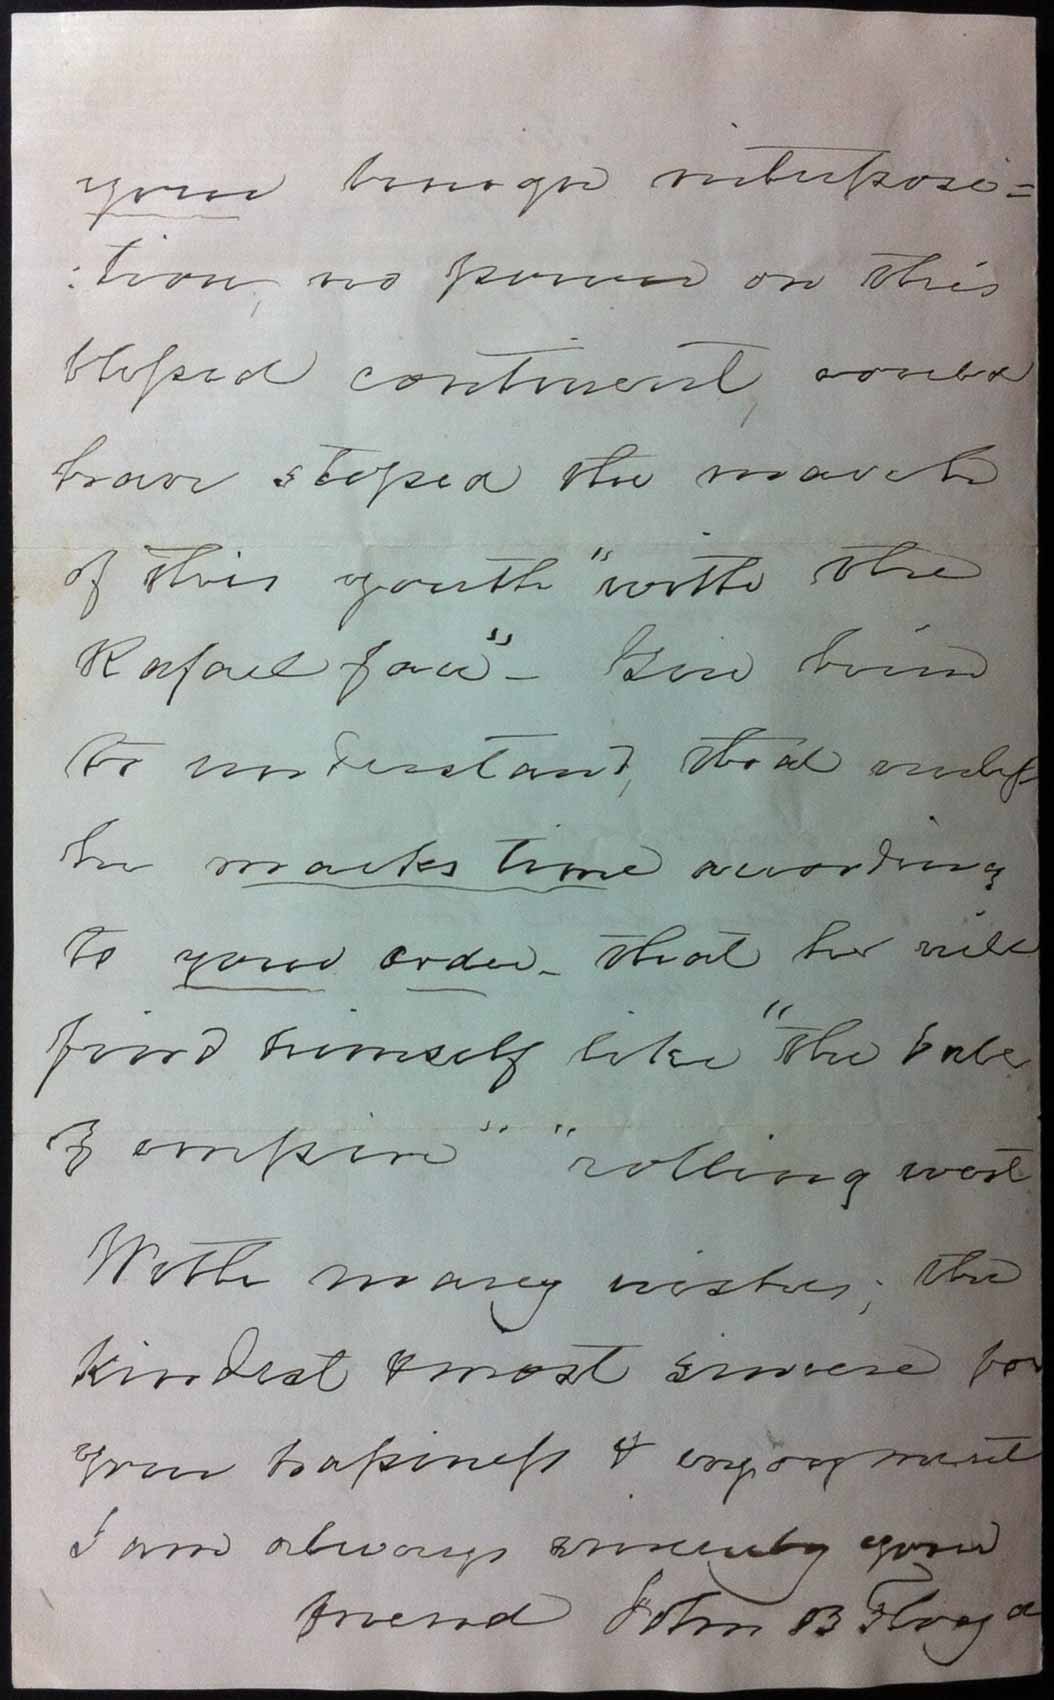 your benign interposi=
:tion, no power on this
blessed continent, could
have stoped the march
of this youth "with the
Rafael face" - Give him
to understand, that unless
he marks time according
to your order - that he will
find himself like "the
of empire" "rolling west
With many wishes, the
kindest & most sincere for
your happiness & enjoyment
I am always sincerely your
friend John B Floyd